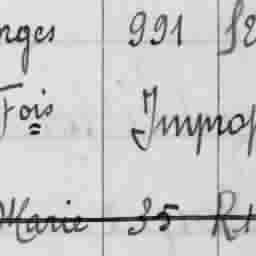 nges 991
Fois Improp
Marie 35